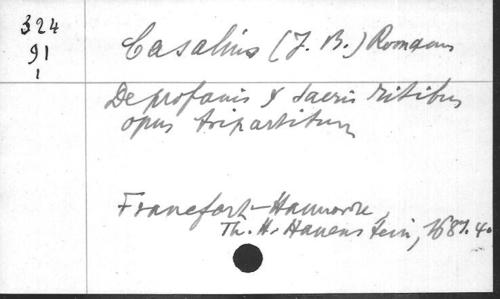 324
91
1
Casalius (J. B.) Romanus
De profanis & sacris ritibus
opus tripartitum
Francfort-Hannovre,
Th. H. Hauenstein, 1681. 4o